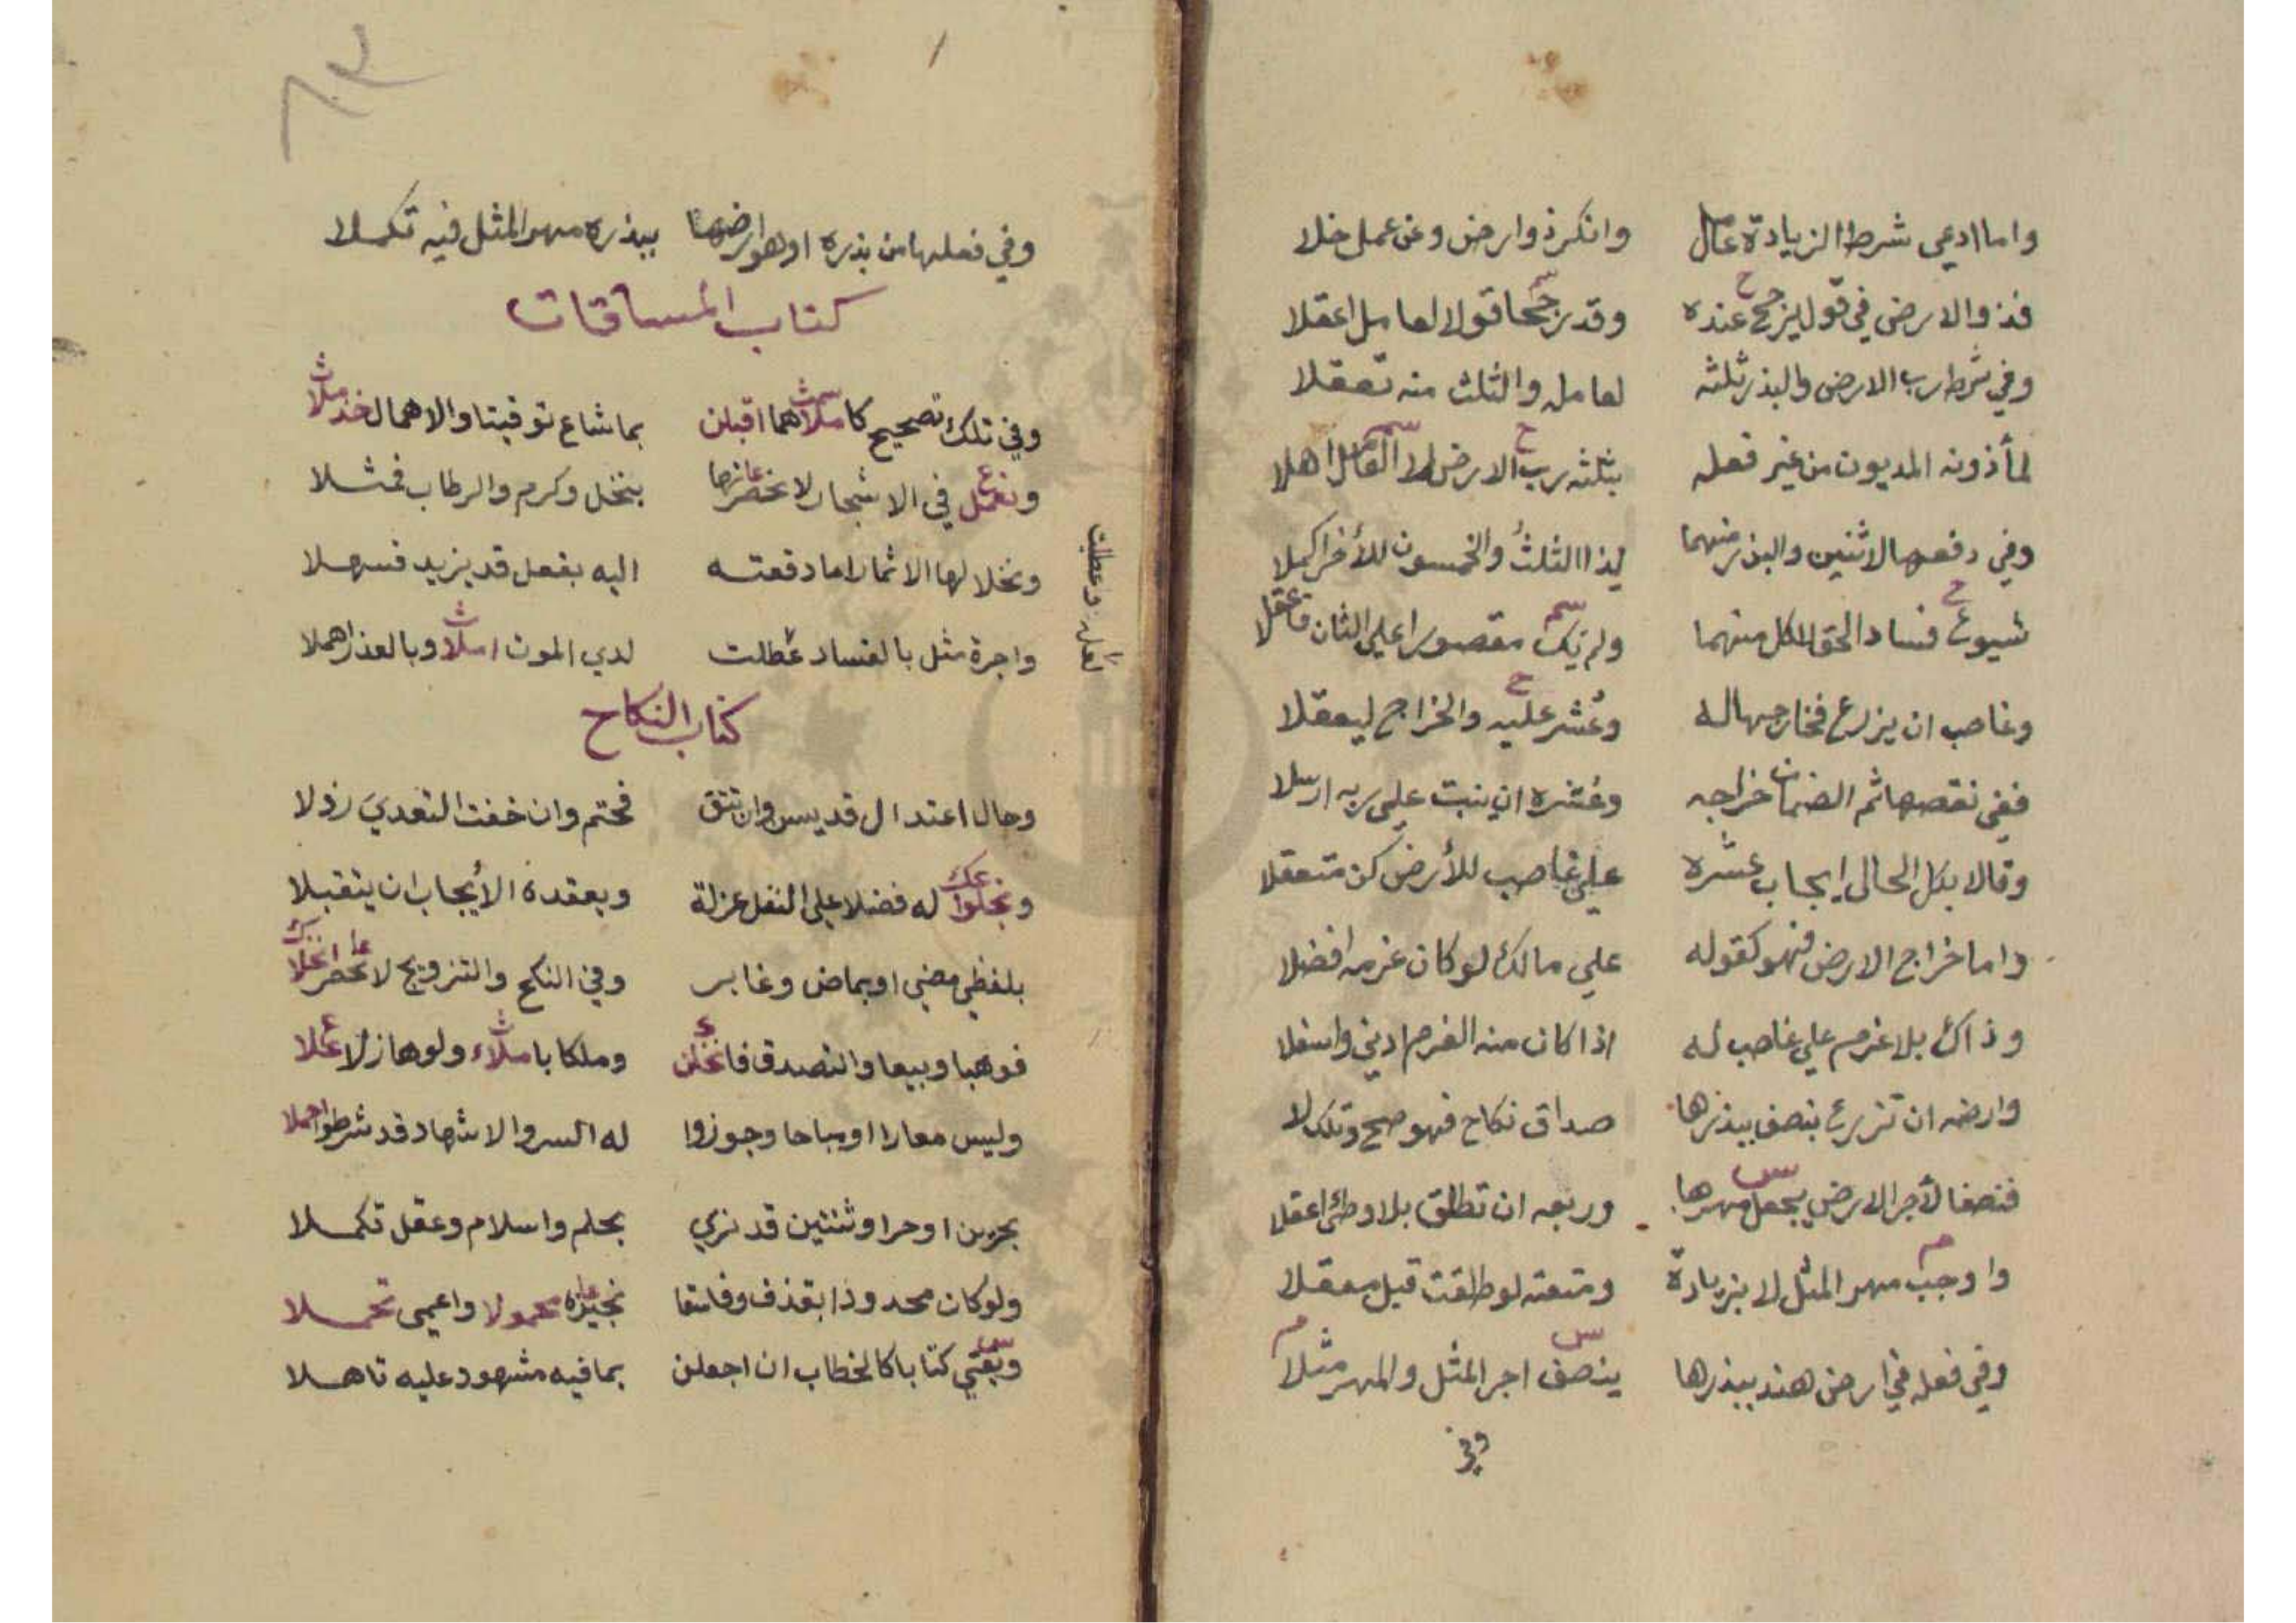 واما ادعى شرط الزيادة عامل وانكر ذو ارض وعن عمل خلا
فذو الارض في قول يرجح عنده وقد رجحا قولا لعامل اعقلا
وفي شرط رب الارض والبذر ثلثه لعامله والثلث منه تعقلا
لمأذونه المديون من غير فعله بثلثه رب الارض اهلا
وفي دفعها لاثنين والبذر منهما لذا الثلثُ والخمسون للأخر اكملا
شيوع فساد الحق للكل منهما ولم يك مقصورا على الثان فاعقلا
وغاصب ان يزرع فخارجها له وعُشر عليه والخراج ليعقلا
ففي نقصها ثم الضمان خراجه وعُشره ان ينبت على ربه ارسلا
وقالا بكل الحال ايجاب عشره على غاصب للأرض كن متعقلا
واما خراج الارض فهو كقوله على مالك لو كان غرمه افضلا
وذاك بلا غرم على غاصب له اذا كان منه الغرم ادنى واسفلا
وارضه ان تزرع بنصف ببذرها صداق نكاح فهو صح وتلك لا
فنصفا لأجر الارض يجعل مهرها وربعه ان تطلق بلا وطئ اعقلا
واوجب مهر المثل لا بزيادة ومتعته لو طلقت قبل معقلا
وفي فعله في ارض هند ببذرها ينصف اجر المثل والمهر مثلا
وفي
وفي فعلها من بذره او هو ارضها ببذره مهر المثل فيه تكملا
كتاب المساقات
وفي تلك تصحيح كاملا هما اقبلن بما شاع توقيتا والاهمال خذ ملا
ونعمل في الاشجار لا نخصرنها بنخل وكرم والرطاب فمثلا
ونخلا لها الاثمار اما دفعته اليه بفعل قد يزيد فسهلا
واجرة مثل بالفساد عُطلت لدي الموت املا وبالعذر اهملا
لعله وعطلت
كتاب النكاح
وحال اعتدال قد يسن وان تتق فحتم وان خفت التعدي رذلا
ونجلوا له فضلا على النفل عزلة وبعقده الأيجاب ان يتقبلا
بلفظي مضي او بماض وغابر وفي النكح والتزويج لا نحصر انجلا
فوهبا وبيعا والتصدق فانخلن وملكا باملاء ولو هازلا علا
وليس معارا او مباحا وجوزوا له السر والاشهاد قد شرطوا احملا
بحرين او حرا وثنتين قد نري بحلم واسلام وعقل تكملا
ولو كان محدودا بقذف وفاسقا نجيزه محمولا واعمى تحملا
ويعني كتابا كالخطاب ان اجعلن بما فيه مشهود عليه تاهلا